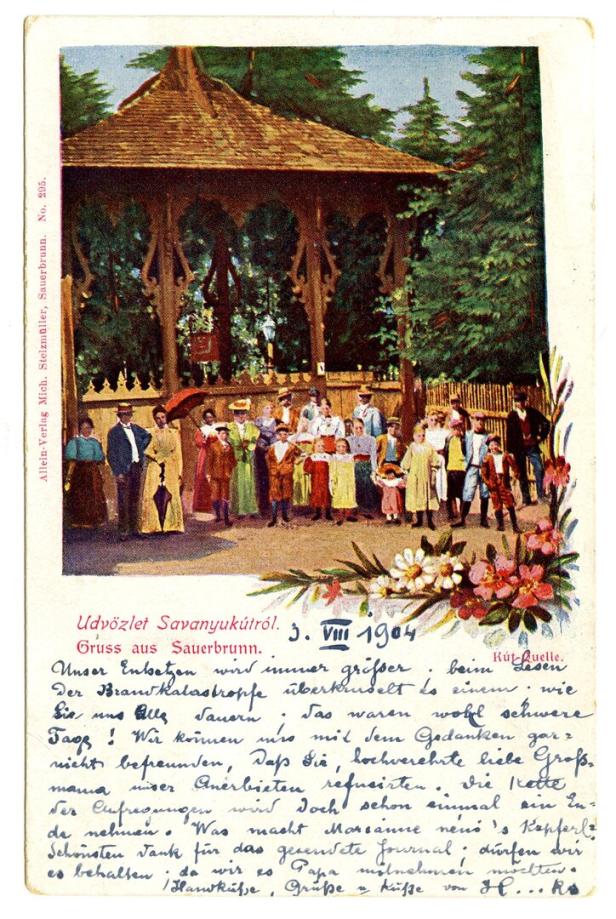 Allein-Verlag Mich. Stelzmüller, Sauerbrunn. No. 295.
Udvözlet Savanyukútról.
3. VIII 1904
Gruss aus Sauerbrunn.
Kút-Quelle.
Unser Entsetzen wird immer größer. beim Lesen
der Brandkatastropfe überkruselt es einem. wie
Sie uns Alle dauern. das waren wohl schwere
Tage! Wir können uns mit dem Gedanken gar=
nicht befreunden, Daß Sie, hochverehrte liebe Groß=
mama unser Anerbieten refusirten. Die Kette
der Aufregungen wird doch schon einmal ein En=
de nehmen. Was macht Marianne néni's Kopferl?
Schönsten Dank für das gesendete Journal. dürfen wir
es behalten. da wir es Papa mitnehmen möchten.
Handküße, Grüße u Küße von